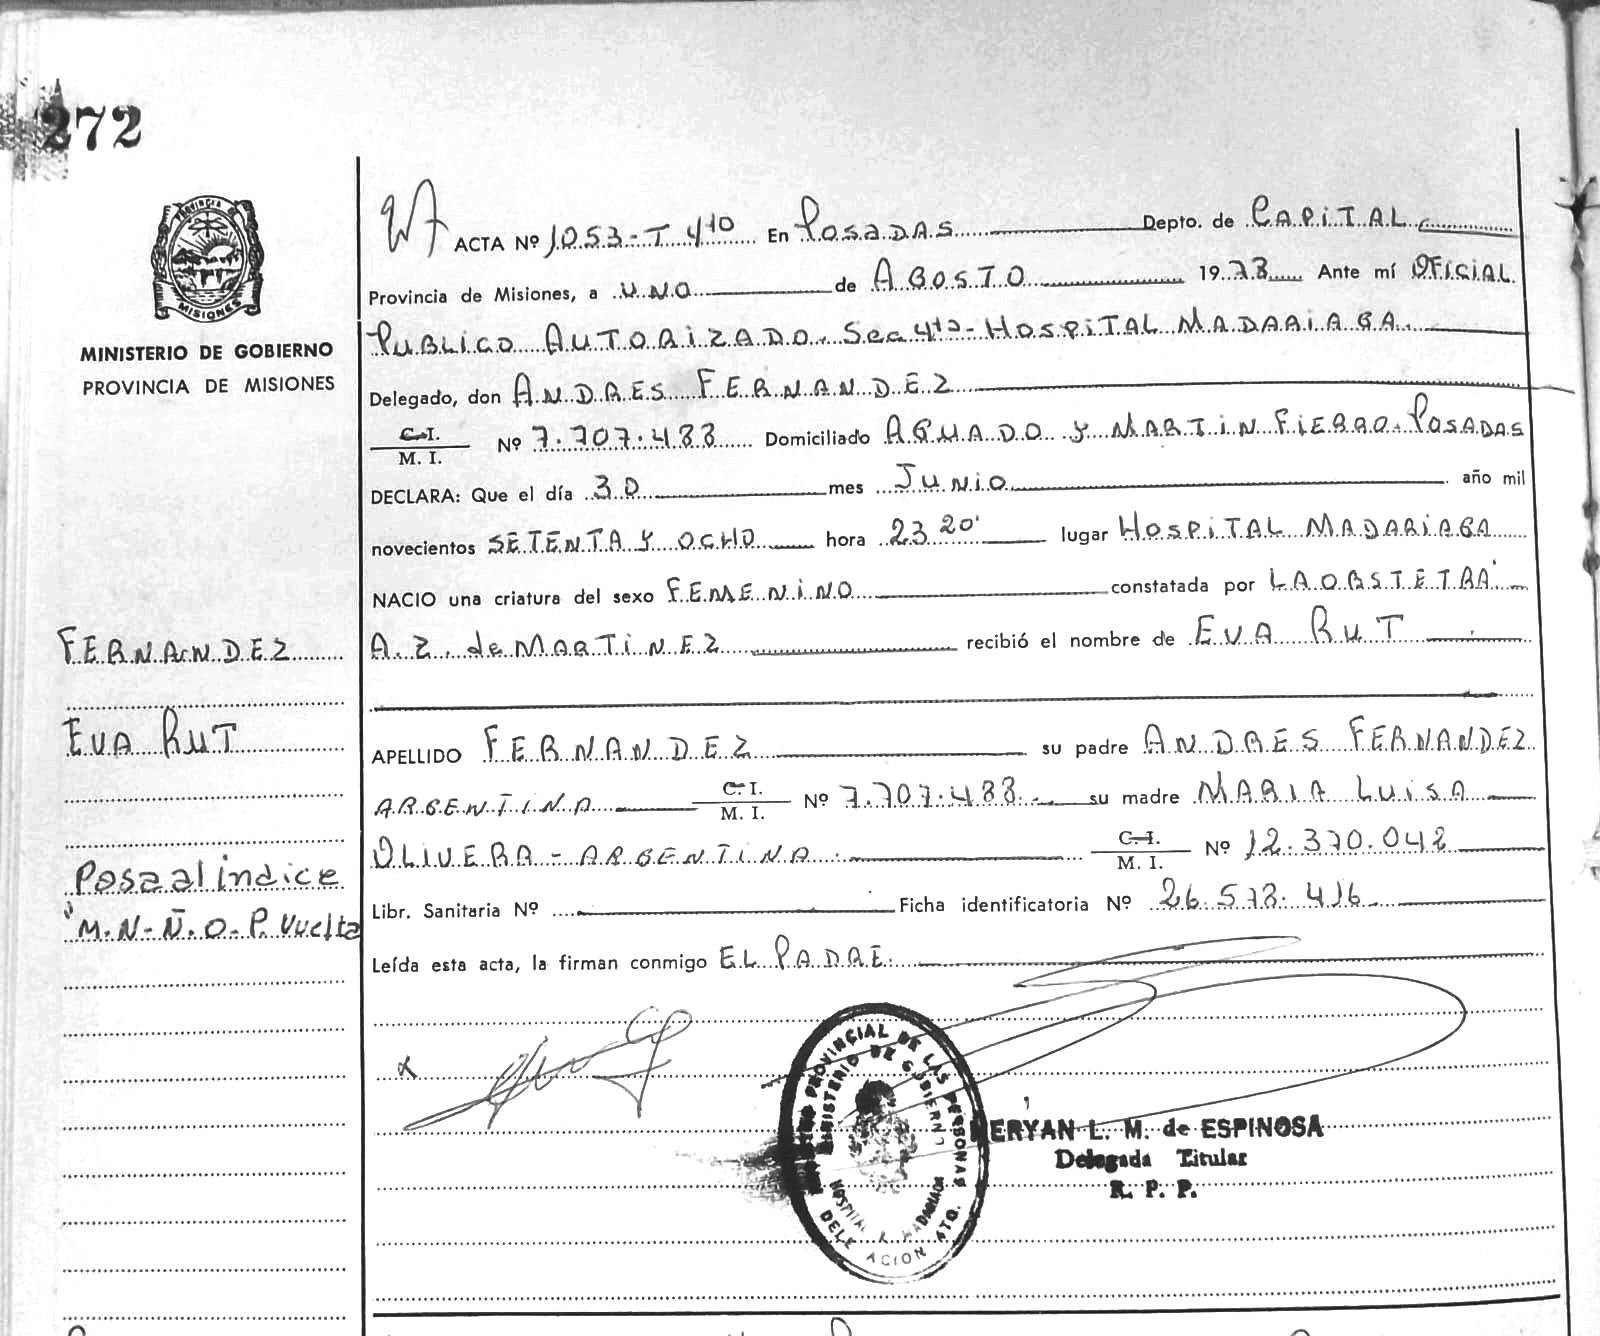 272
PROVINCIA DE
MISIONES
MINISTERIO DE GOBIERNO
PROVINCIA DE MISIONES
ACTA Nº 1053-T 4to En POSADAS Depto. de CAPITAL
Provincia de Misiones, a UNO de AGOSTO 1978 Ante mí OFICIAL
PUBLICO AUTORIZADO. Sec 4ta- HOSPITAL MADARIAGA.
Delegado, don ANDRES FERNANDEZ
C.I.
M. I. Nº 7.707.488 Domiciliado AGUADO Y MARTIN FIERRO-POSADAS
DECLARA: Que el día 30 mes JUNIO año mil
novecientos SETENTA Y OCHO hora 23 20' lugar HOSPITAL MADARIAGA
NACIO una criatura del sexo FEMENINO constatada por LA OBSTETRA
A. Z. de MARTINEZ recibió el nombre de EVA RUT
FERNANDEZ
EVA RUT
APELLIDO FERNANDEZ su padre ANDRES FERNANDEZ
ARGENTINA C.I. M. I. Nº 7.707.488 su madre MARIA LUISA
OLIVERA - ARGENTINA. C.I. M. I. Nº 12.370.042
Pasa al indice
M.N-Ñ.O-P. Vuelta
Libr. Sanitaria Nº Ficha identificatoria Nº 26.578.416
Leída esta acta, la firman conmigo EL PADRE.
PROVINCIAL DE LAS PERSONAS
MINISTERIO DE GOBIERNO
HOSPITAL R. MADARIAGA
DELEGACION 4TA.
NERYAN L. M. de ESPINOSA
Delegada Titular
R. P. P.